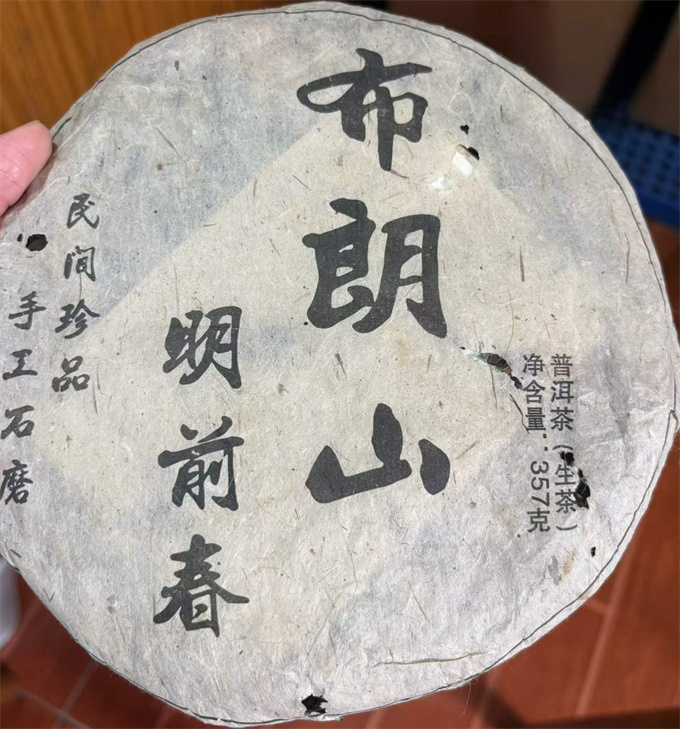 布朗山
明前春
民间珍品
手工石磨
普洱茶（生茶）
净含量：357克